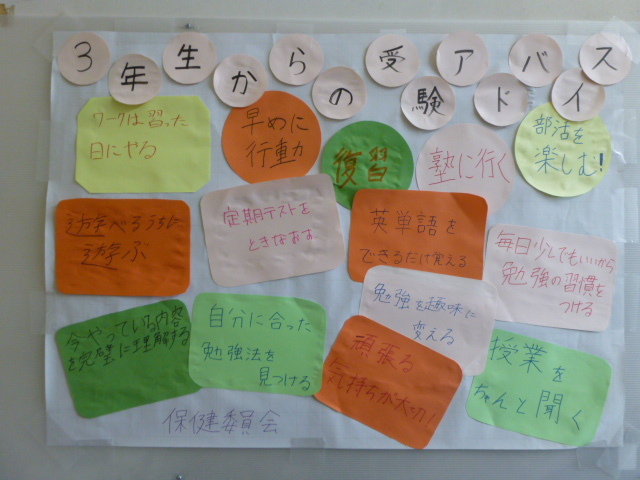 3年生からの受験アドバイス
ワークは習った
日にやる
早めに
行動
復習
塾に行く
部活を
楽しむ!
遊べるうちに
遊ぶ
定期テストを
ときなおす
英単語を
できるだけ覚える
毎日少しでもいいから
勉強の習慣を
つける
今やっている内容
を完璧に理解する
自分に合った
勉強法を
見つける
勉強を趣味に
変える
頑張る
気持ちが大切!
授業を
ちゃんと聞く
保健委員会